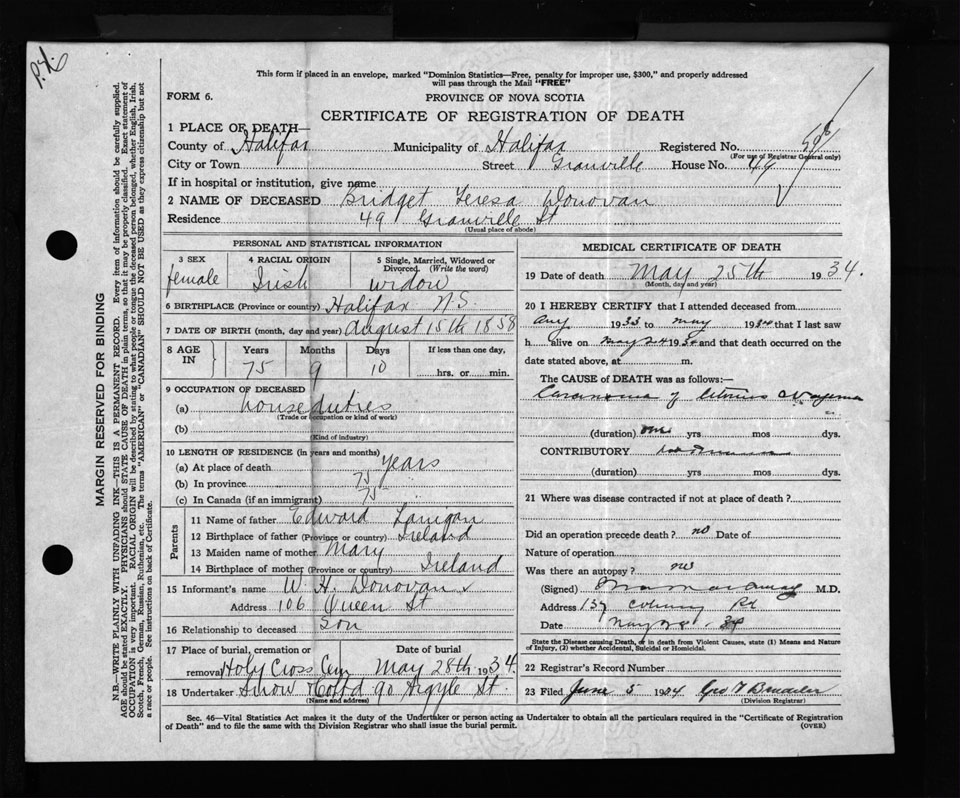 This form if placed in an envelope, marked "Dominion Statistics—Free, penalty for improper use, $300," and properly addressed
will pass through the Mail "FREE"
FORM 6.
PROVINCE OF NOVA SCOTIA
CERTIFICATE OF REGISTRATION OF DEATH
1 PLACE OF DEATH—
County of Halifax Municipality of Halifax Registered No.
(For use of Registrar General only)
City or Town Street Granville House No. 49
If in hospital or institution, give name
2 NAME OF DECEASED Bridget Teresa Donovan
Residence 49 Granville St
(Usual place of abode)
PERSONAL AND STATISTICAL INFORMATION
3 SEX female
4 RACIAL ORIGIN Irish
5 Single, Married, Widowed or Divorced. (Write the word) widow
6 BIRTHPLACE (Province or country) Halifax N S
7 DATE OF BIRTH (month, day and year) August 15th 1858
8 AGE IN Years Months Days If less than one day,
75 9 10 hrs. or min.
9 OCCUPATION OF DECEASED
(a) house duties
(Trade or occupation or kind of work)
(b)
(Kind of industry)
10 LENGTH OF RESIDENCE (in years and months)
(a) At place of death years
(b) In province 75
(c) In Canada (if an immigrant) 75
Parents
11 Name of father Edward Lanigan
12 Birthplace of father (Province or country) Ireland
13 Maiden name of mother Mary
14 Birthplace of mother (Province or country) Ireland
15 Informant's name W. H. Donovan
Address 106 Queen St
16 Relationship to deceased Son
17 Place of burial, cremation or removal Holy Cross Cem
Date of burial May 28th 1934.
18 Undertaker Snow & Co Ltd 90 Argyle St.
(Name and address)
MEDICAL CERTIFICATE OF DEATH
19 Date of death May 25th 1934.
(Month, day and year)
20 I HEREBY CERTIFY that I attended deceased from
Aug 1933 to May 1934 that I last saw
h alive on May 24 1934 and that death occurred on the
date stated above, at m.
The CAUSE of DEATH was as follows:—
Carcinoma of Uterus & Vagina
(duration) one yrs mos dys.
CONTRIBUTORY
(duration) yrs mos dys.
21 Where was disease contracted if not at place of death?
Did an operation precede death? no Date of
Nature of operation
Was there an autopsy? no
(Signed) M.D.
Address 137 Rd
Date May 28. 34
State the Disease causing Death, or in death from Violent Causes, state (1) Means and Nature
of Injury, (2) whether Accidental, Suicidal or Homicidal.
22 Registrar's Record Number
23 Filed June 5 1934 Geo
(Division Registrar)
Sec. 46—Vital Statistics Act makes it the duty of the Undertaker or person acting as Undertaker to obtain all the particulars required in the "Certificate of Registration
of Death" and to file the same with the Division Registrar who shall issue the burial permit.
(OVER)
MARGIN RESERVED FOR BINDING
N.B.—WRITE PLAINLY WITH UNFADING INK—THIS IS A PERMANENT RECORD. Every item of information should be carefully supplied.
AGE should be stated EXACTLY. PHYSICIANS should STATE CAUSE OF DEATH in plain terms, so that it may be properly classified. Exact statement of
OCCUPATION is very important. RACIAL ORIGIN will be described by stating to what people or tongue the deceased person belonged, whether English, Irish,
Scotch, French, German, Russian, Ruthenian, etc. The terms "AMERICAN" or "CANADIAN" SHOULD NOT BE USED as they express citizenship but not
a race or people. See instructions on back of Certificate.